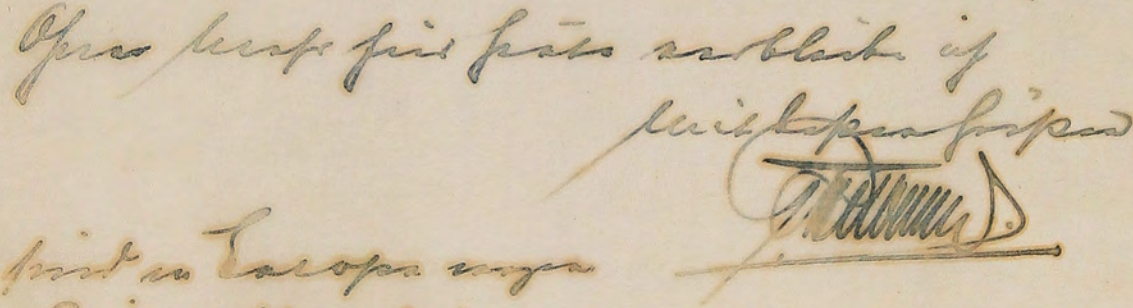 Ohne mehr für heute verbleibe ich
mit besten Grüßen
sind in Europa wegen